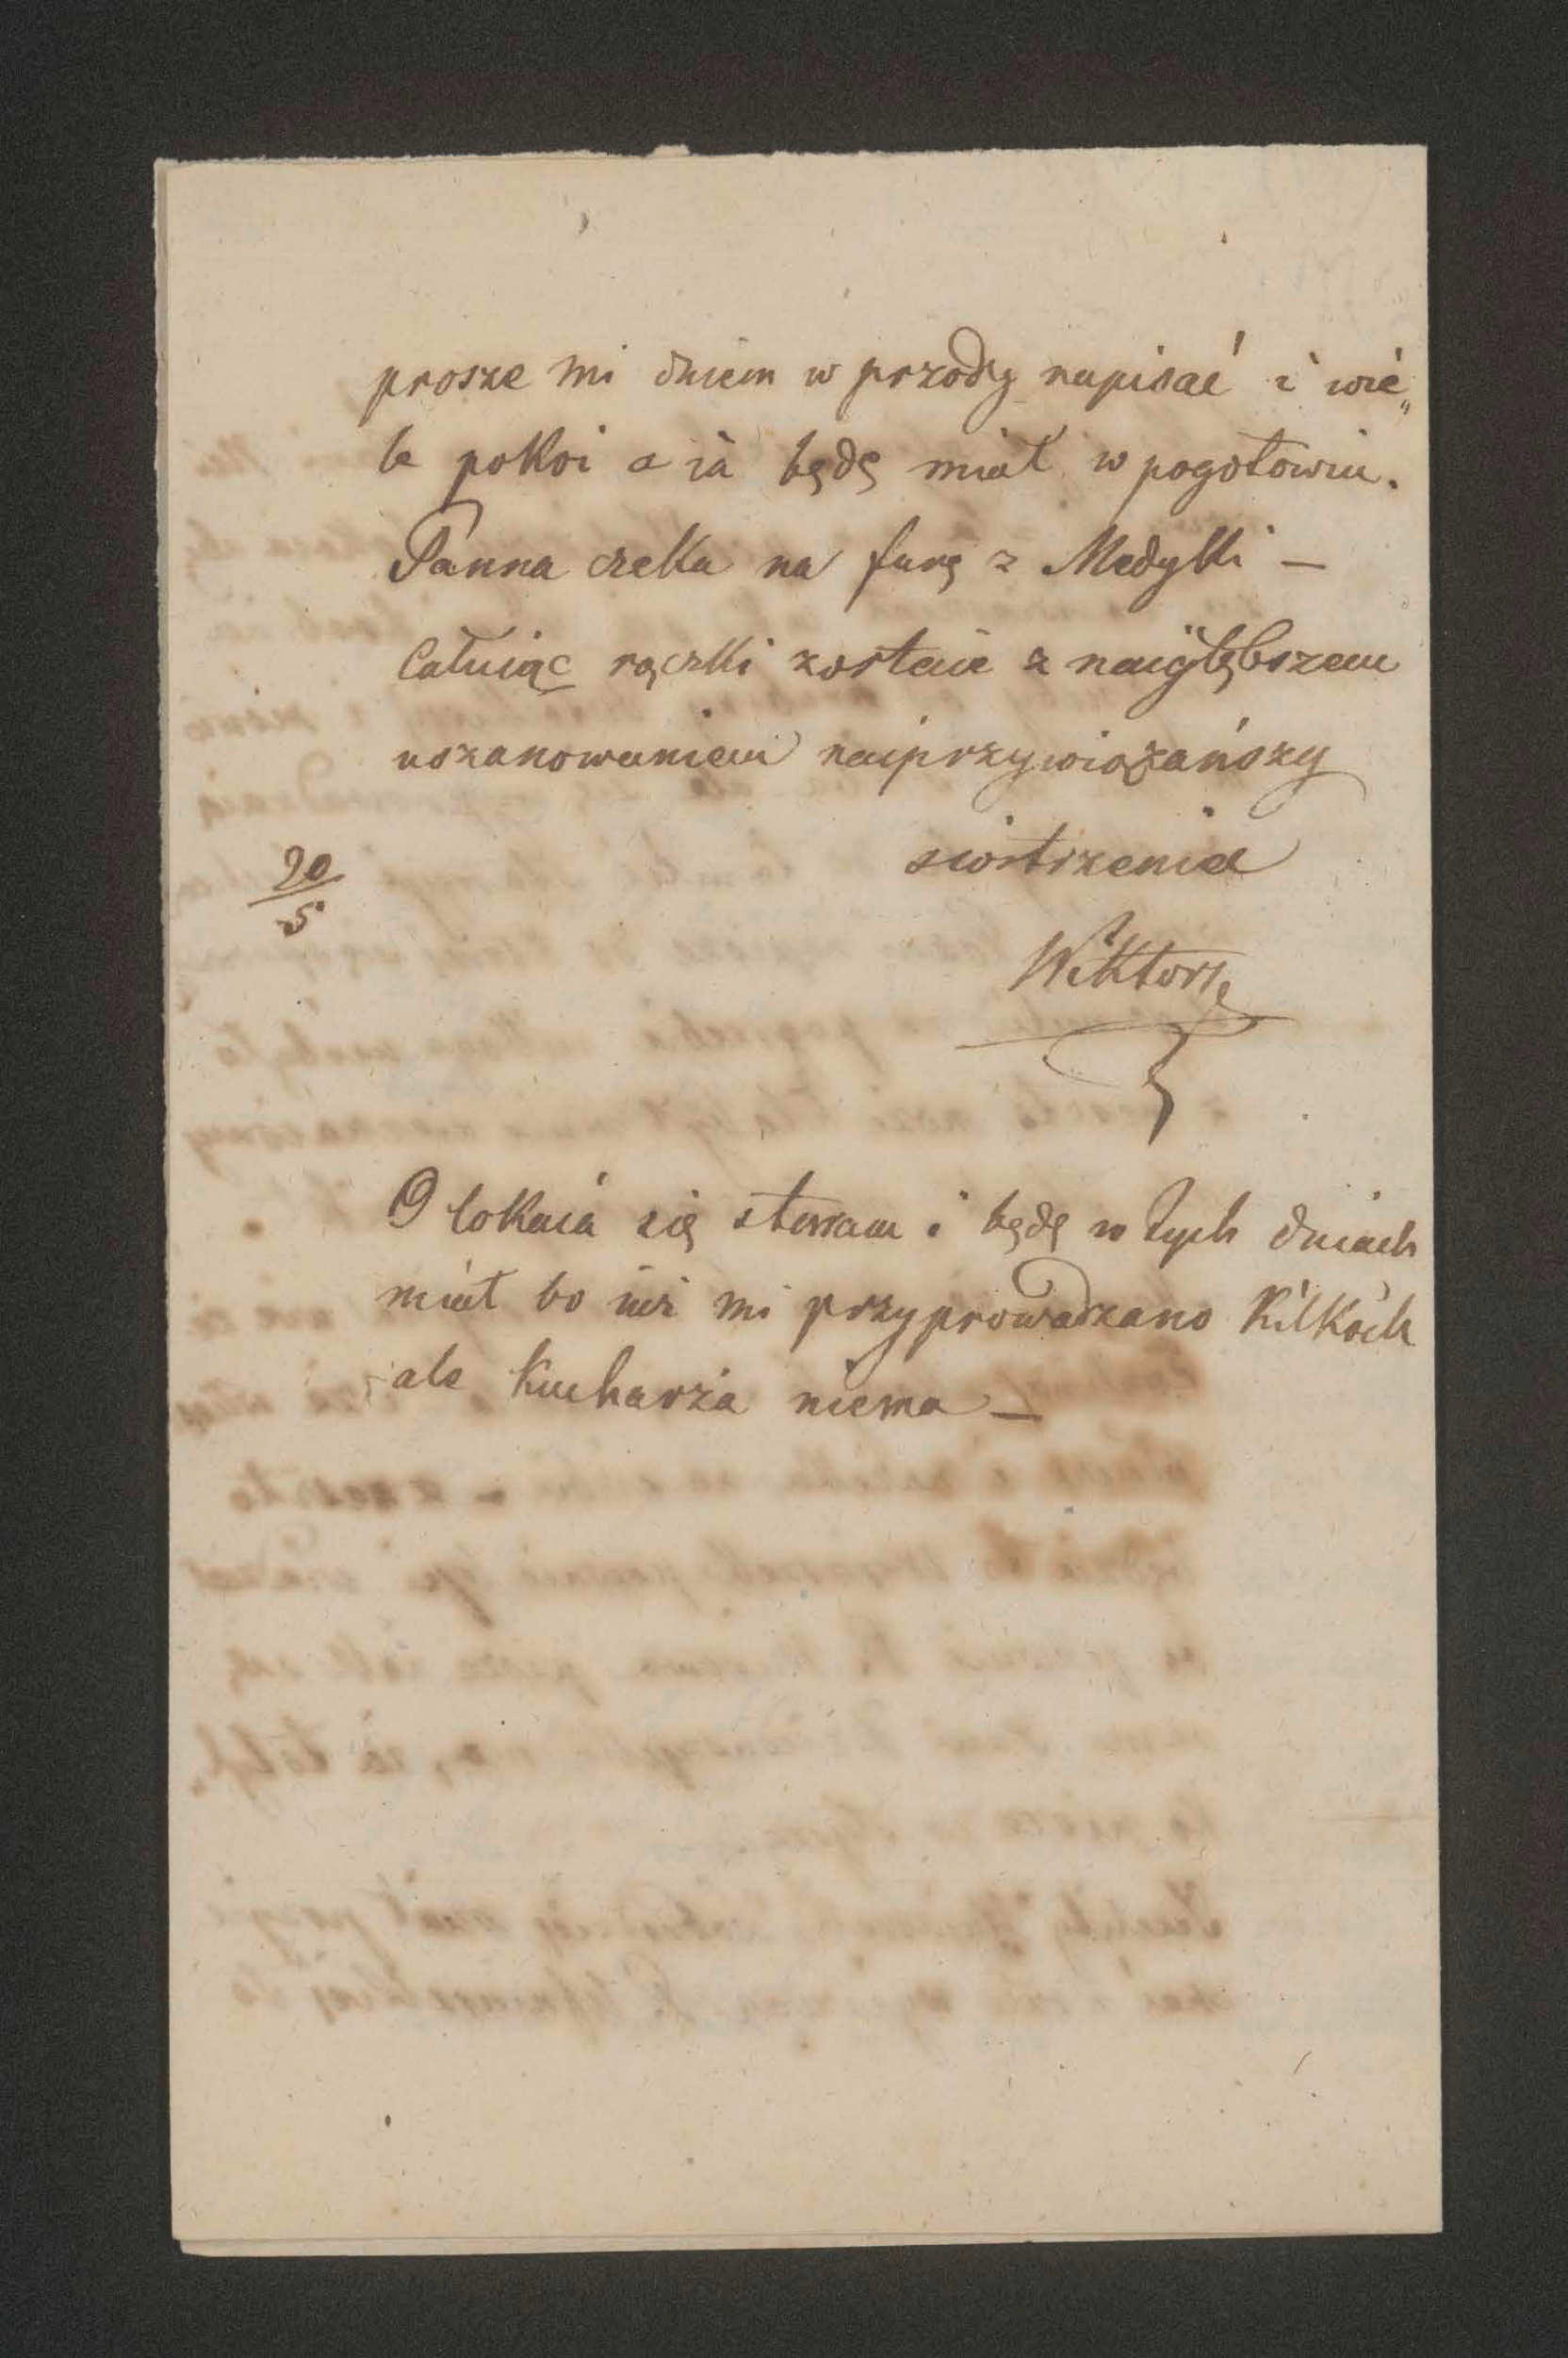 prosze mi dniem w przody napisać i wie„
le pokoi a ia będę miał w pogotowiu.
Panna czeka na furę z Medyki —
Całuiąc rączki zostaie z naigłębszem
uszanowaniem naiprzywiązańszy
siostrzeniec
20/5
Wiktor
O lokaia się staram i będę w tych dniach
miał bo iuż mi przyprowadzano kilkóch
ale kucharza niema —